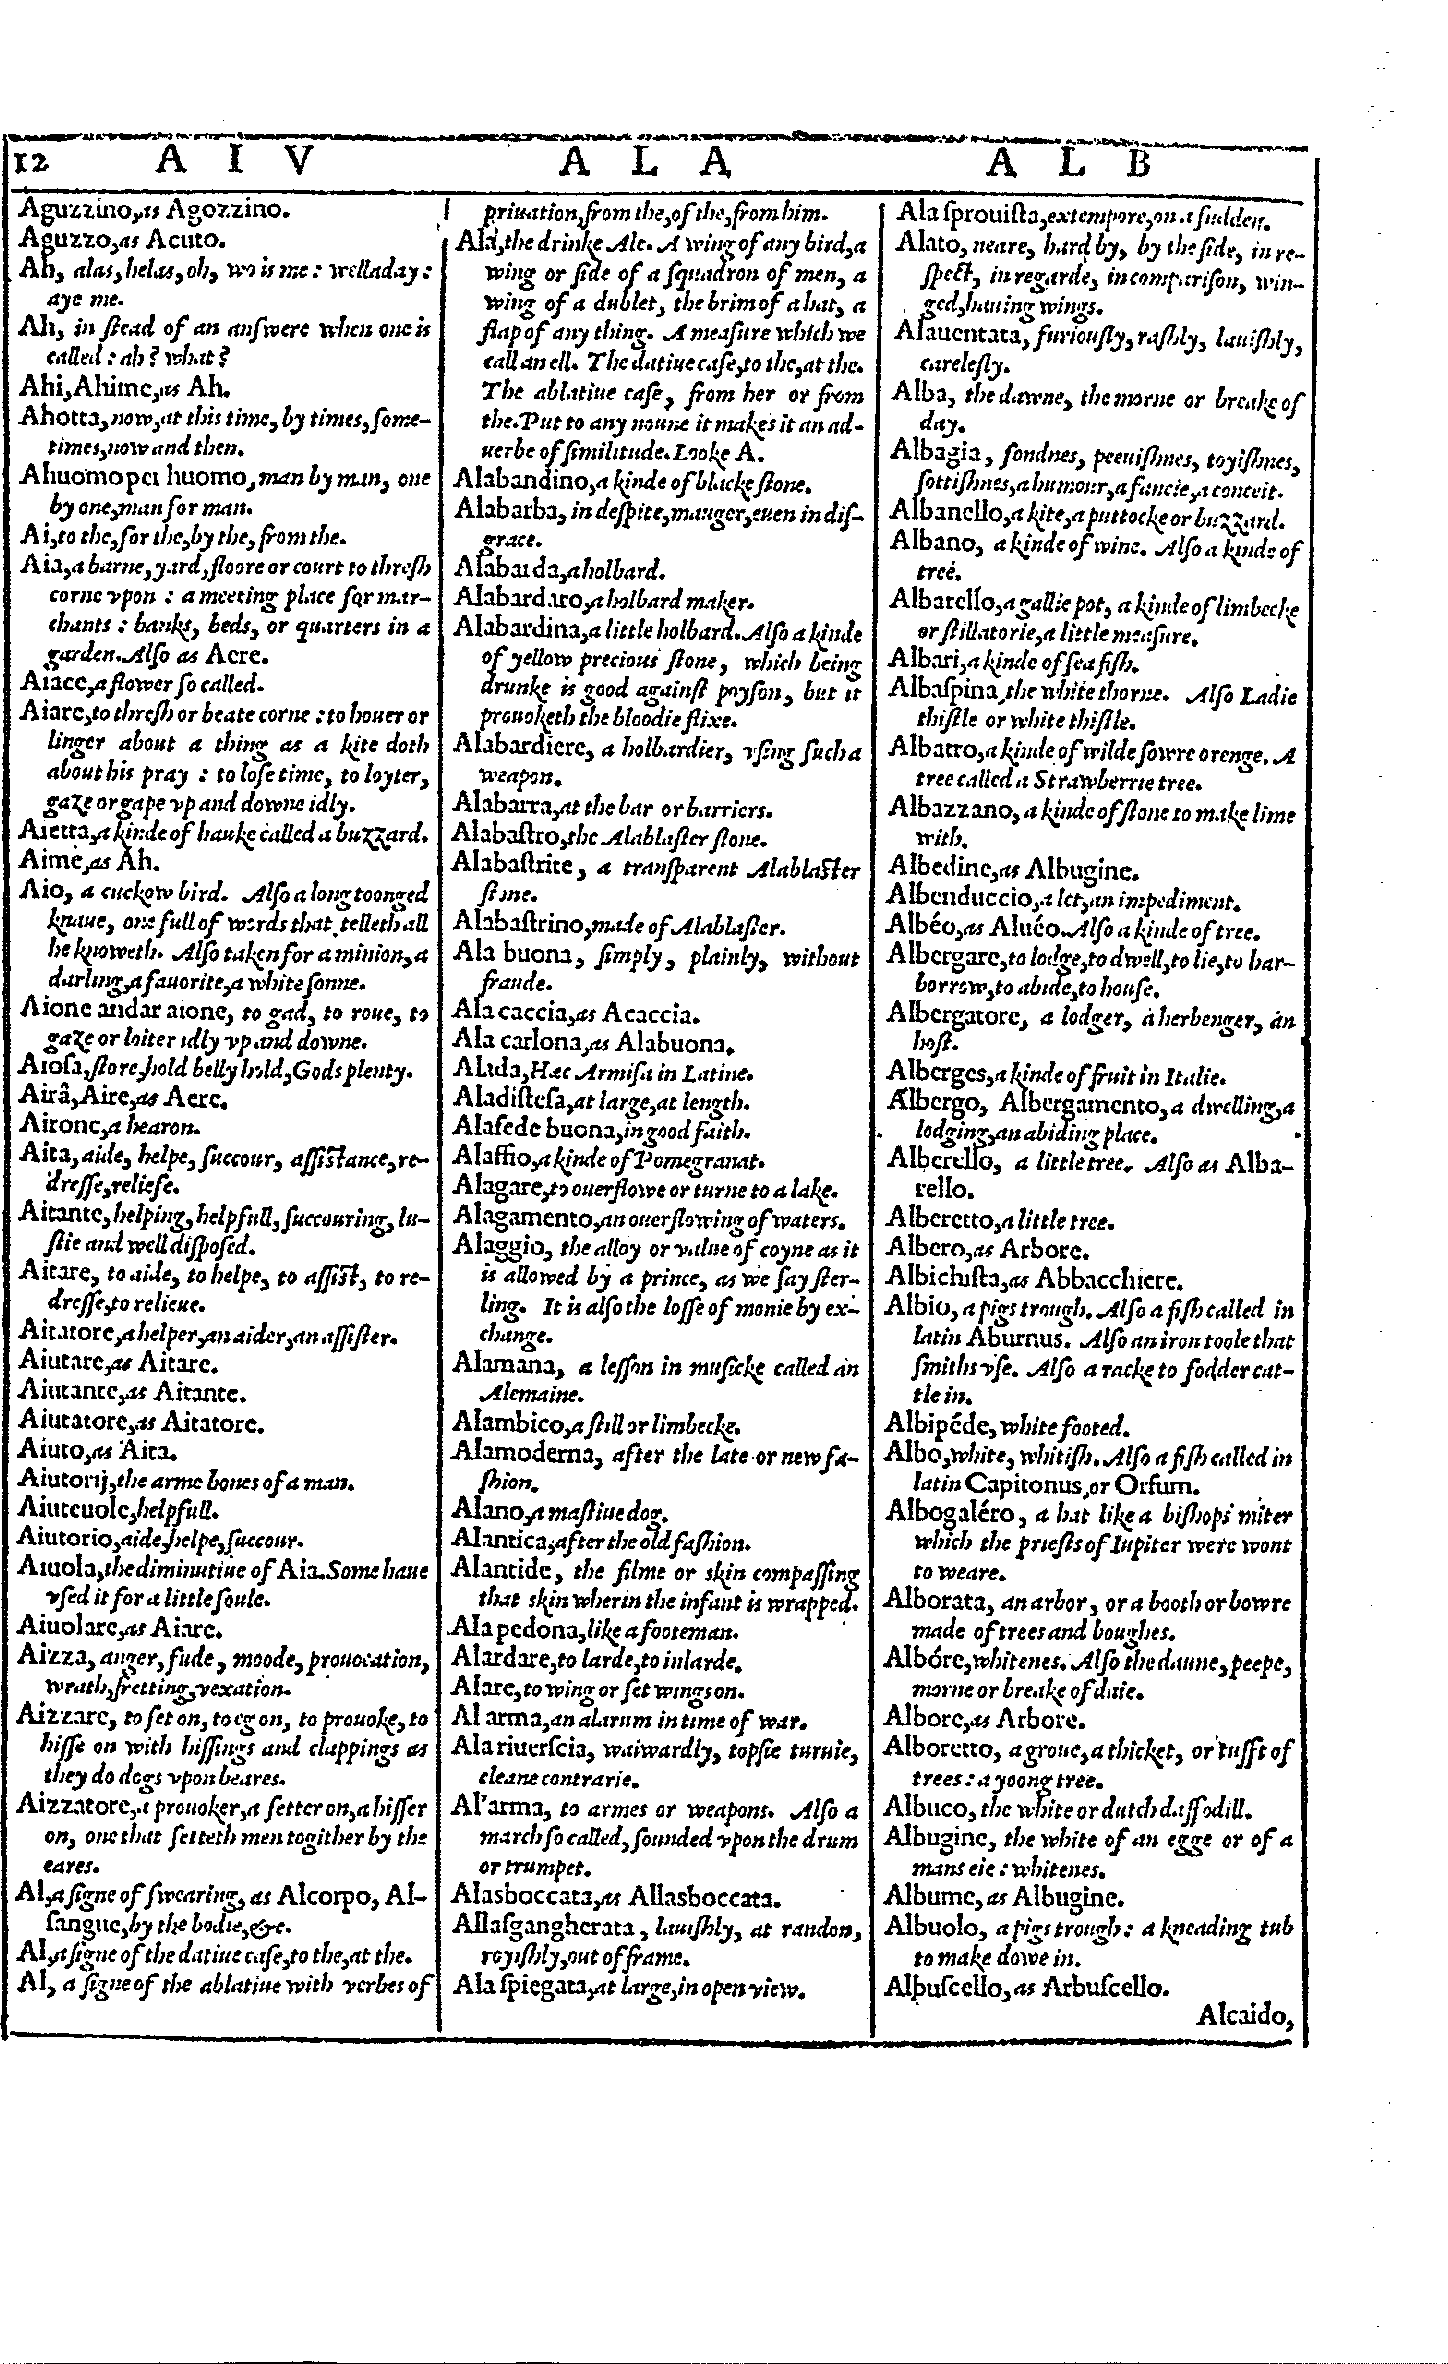 12 A I V A L A A L B
Aguzzino, as Agozzino.
Aguzzo, as Acuto.
Ah, alas, helas, oh, wo is me: welladay:
aye me.
Ah, in ſtead of an anſwere when one is
called: ah? what?
Ahi, Ahime, as Ah.
Ahotta, now, at this time, by times, ſome-
times, now and then.
Ahuomo per huomo, man by man, one
by one, man for man.
Ai, to the, for the, by the, from the.
Aia, a barne, yard, floore or court to threſh
corne vpon: a meeting place for mar-
chants: banks, beds, or quarters in a
garden. Alſo as Aere.
Aiace, a flower ſo called.
Aiare, to threſh or beate corne: to houer or
linger about a thing as a kite doth
about his pray: to loſe time, to loyter,
gaze or gape vp and downe idly.
Aietta, a kinde of hauke called a buzzard.
Aime, as Ah.
Aio, a cuckow bird. Alſo a long toonged
knaue, one full of words that telleth all
he knoweth. Alſo taken for a minion, a
darling, a fauorite, a white ſonne.
Aione andar aione, to gad, to roue, to
gaze or loiter idly vp and downe.
Aioſa, ſtore, hold belly hold, Gods plenty.
Airâ, Aire, as Aere.
Airone, a hearon.
Aita, aide, helpe, ſuccour, aſſiſtance, re-
dreſſe, reliefe.
Aitante, helping, helpfull, ſuccouring, lu-
ſtie and well diſpoſed.
Aitare, to aide, to helpe, to aſſiſt, to re-
dreſſe, to relieue.
Aitatore, a helper, an aider, an aſſiſter.
Aiutare, as Aitare.
Aiutante, as Aitante.
Aiutatore, as Aitatore.
Aiuto, as Aita.
Aiutorij, the arme bones of a man.
Aiuteuole, helpfull.
Aiutorio, aide, helpe, ſuccour.
Aiuola, the diminutiue of Aia. Some haue
vſed it for a little ſoule.
Aiuolare, as Aiare.
Aizza, anger, fude, moode, prouocation,
wrath, fretting, vexation.
Aizzare, to ſet on, to eg on, to prouoke, to
hiſſe on with hiſſings and clappings as
they do dogs vpon beares.
Aizzatore, a prouoker, a ſetter on, a hiſſer
on, one that ſetteth men togither by the
eares.
Al, a ſigne of ſwearing, as Alcorpo, Al-
ſangue, by the bodie, &c.
Al, a ſigne of the datiue caſe, to the, at the.
Al, a ſigne of the ablatiue with verbes of
priuation, from the, of the, from him.
Ala, the drinke Ale. A wing of any bird, a
wing or ſide of a ſquadron of men, a
wing of a dublet, the brim of a hat, a
flap of any thing. A meaſure which we
call an ell. The datiue caſe, to the, at the.
The ablatiue caſe, from her or from
the. Put to any noune it makes it an ad-
uerbe of ſimilitude. Looke A.
Alabandino, a kinde of blacke ſtone.
Alabarba, in deſpite, mauger, euen in diſ-
grace.
Alabarda, a holbard.
Alabardaro, a holbard maker.
Alabardina, a little holbard. Alſo a kinde
of yellow precious ſtone, which being
drunke is good againſt poyſon, but it
prouoketh the bloodie flixe.
Alabardiere, a holbardier, vſing ſuch a
weapon.
Alabarra, at the bar or barriers.
Alabaſtro, the Alablaſter ſtone.
Alabaſtrite, a tranſparent Alablaſter
ſtone.
Alabaſtrino, made of Alablaſter.
Ala buona, ſimply, plainly, without
fraude.
Ala caccia, as Acaccia.
Ala carlona, as Alabuona.
Alida, Hæc Armiſa in Latine.
Aladiſteſa, at large, at length.
Alafede buona, in good faith.
Alaffio, a kinde of Pomegranat.
Alagare, to ouerflowe or turne to a lake.
Alagamento, an ouerflowing of waters.
Alaggio, the alloy or value of coyne as it
is allowed by a prince, as we ſay ſter-
ling. It is alſo the loſſe of monie by ex-
change.
Alamana, a leſſon in muſicke called an
Alemaine.
Alambico, a ſtill or limbecke.
Alamoderna, after the late or new fa-
ſhion.
Alano, a maſtiue dog.
Alantica, after the old faſhion.
Alantide, the filme or skin compaſſing
that skin wherin the infant is wrapped.
Ala pedona, like a footeman.
Alardare, to larde, to inlarde.
Alare, to wing or ſet wings on.
Al arma, an alarum in time of war.
Ala riuerſcia, waiwardly, topſie turuie,
cleane contrarie.
Al'arma, to armes or weapons. Alſo a
march ſo called, ſounded vpon the drum
or trumpet.
Alasboccata, as Allasboccata.
Allaſgangherata, lauiſhly, at randon,
royiſhly, out of frame.
Ala ſpiegata, at large, in open view.
Ala ſprouiſta, extempore, on a ſudden.
Alato, neare, hard by, by the ſide, in re-
ſpect, in regarde, in compariſon, win-
ged, hauing wings.
Alauentata, furiouſly, raſhly, lauiſhly,
careleſly.
Alba, the dawne, the morne or breake of
day.
Albagia, fondnes, peeuiſhnes, toyiſhnes,
ſottiſhnes, a humour, a fancie, a conceit.
Albanello, a kite, a puttocke or buzzard.
Albano, a kinde of wine. Alſo a kinde of
tree.
Albarello, a gallie pot, a kinde of limbecke
or ſtillatorie, a little meaſure.
Albari, a kinde of ſea fiſh.
Albaſpina, the white thorne. Alſo Ladie
thiſtle or white thiſtle.
Albatro, a kinde of wilde ſowre orenge. A
tree called a Strawberrie tree.
Albazzano, a kinde of ſtone to make lime
with.
Albedine, as Albugine.
Albenduccio, a let, an impediment.
Albéo, as Aluéo. Alſo a kinde of tree.
Albergare, to lodge, to dwell, to lie, to har-
borrow, to abide, to houſe.
Albergatore, a lodger, a herbenger, an
hoſt.
Alberges, a kinde of fruit in Italie.
Albergo, Albergamento, a dwelling, a
lodging, an abiding place.
Alberello, a little tree. Alſo as Alba-
rello.
Alberetto, a little tree.
Albero, as Arbore.
Albichiſta, as Abbacchiere.
Albio, a pigs trough. Alſo a fiſh called in
latin Aburnus. Alſo an iron toole that
ſmiths vſe. Alſo a racke to fodder cat-
tle in.
Albipéde, white footed.
Albo, white, whitiſh. Alſo a fiſh called in
latin Capitonus, or Orfum.
Albogaléro, a hat like a biſhops miter
which the prieſts of Iupiter were wont
to weare.
Alborata, an arbor, or a booth or bowre
made of trees and boughes.
Albóre, whitenes. Alſo the daune, peepe,
morne or breake of daie.
Albore, as Arbore.
Alboretto, a groue, a thicket, or tufft of
trees: a yoong tree.
Albuco, the white or dutch daffodill.
Albugine, the white of an egge or of a
mans eie: whitenes.
Albume, as Albugine.
Albuolo, a pigs trough: a kneading tub
to make dowe in.
Albuſcello, as Arbuſcello.
Alcaido,